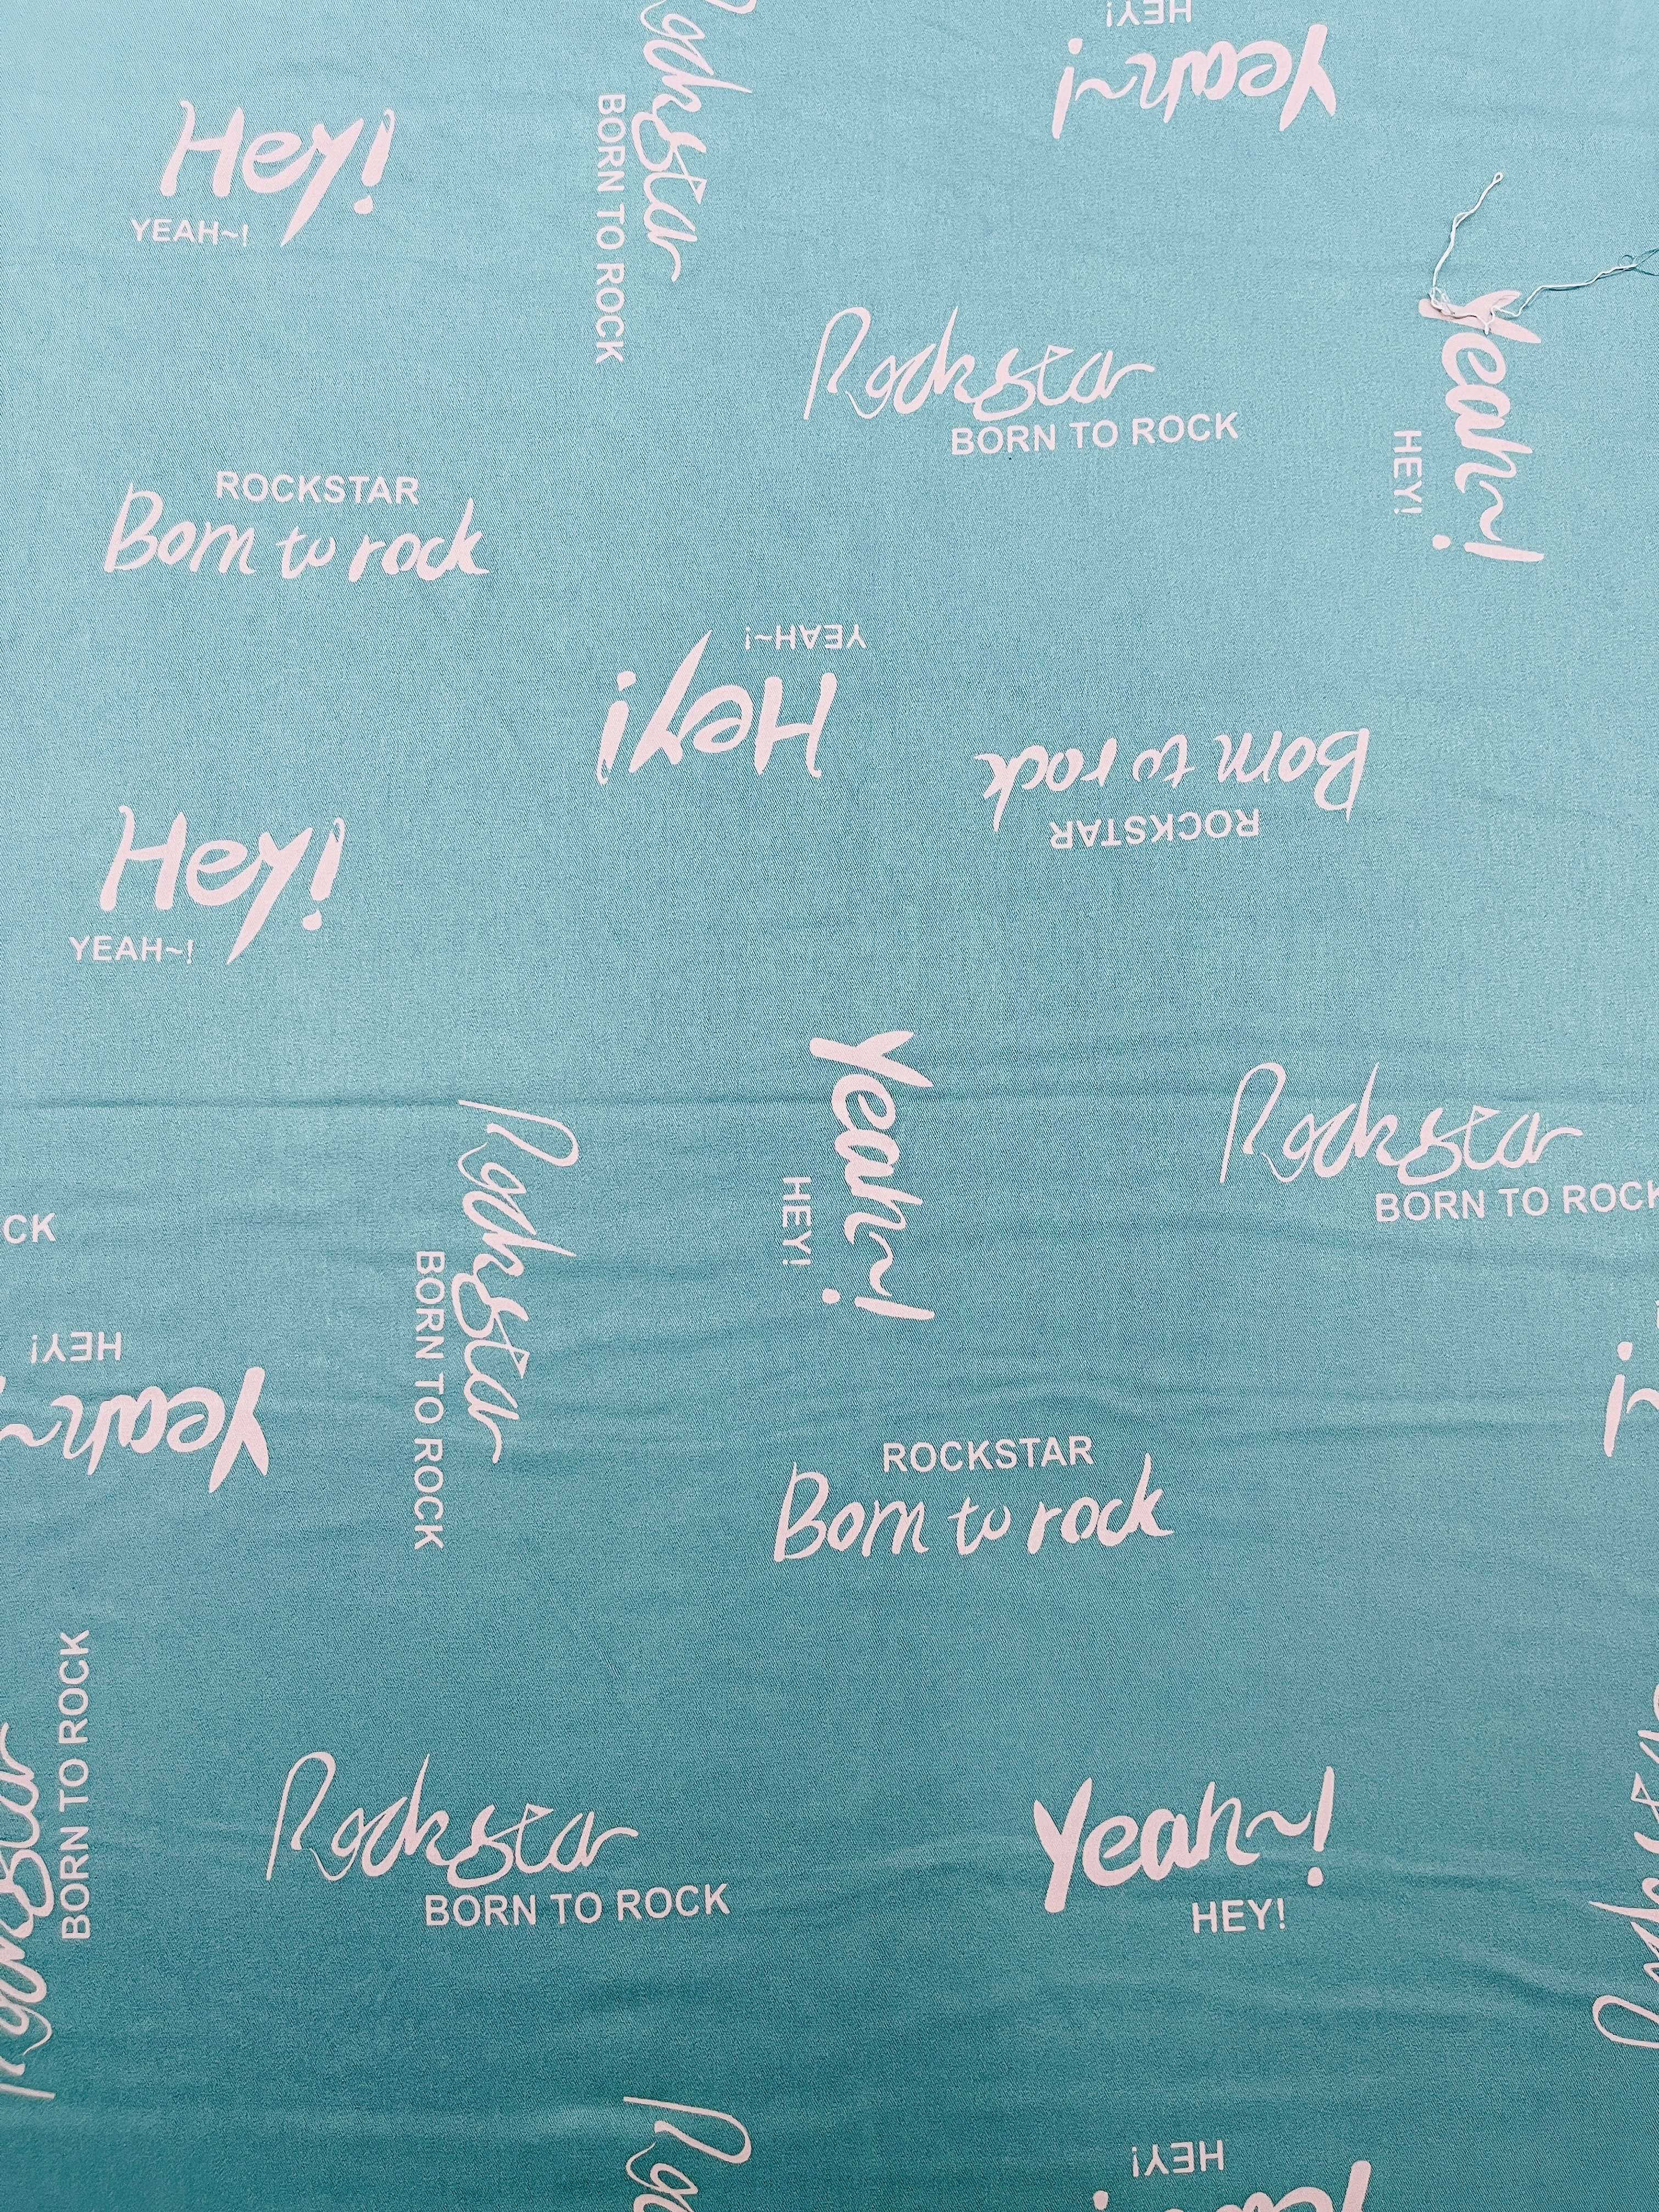 HEY!
Yeah~!
Rockstar
BORN TO ROCK
Hey!
YEAH~!
Yeah~!
HEY!
Rockstar
BORN TO ROCK
ROCKSTAR
Born to rock
YEAH~!
Hey!
Born to rock
ROCKSTAR
Hey!
YEAH~!
Yeah~!
HEY!
Rockstar
BORN TO ROCK
Rockstar
BORN TO ROCK
CK
HEY!
Yeah~
ROCKSTAR
Born to rock
Rockstar
BORN TO ROCK
Rockstar
BORN TO ROCK
Yeah~!
HEY!
HEY!